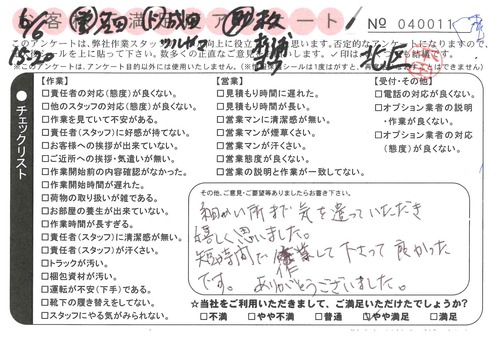 お客様満足度アンケート
№ 040011
6/6
15:20
北区
このアンケートは、弊社作業スタッフ
【作業】
□責任者の対応(態度)が良くない。
□他のスタッフの対応(態度)が良くない。
□作業を見ていて不安がある。
□責任者(スタッフ)に好感が持てない。
□お客様への挨拶が出来ていない。
□ご近所への挨拶・気遣いが無い。
□作業開始前の内容確認がなかった。
□作業開始時間が遅れた。
□荷物の取り扱いが雑である。
□お部屋の養生が出来ていない。
□作業時間が長すぎる。
□責任者(スタッフ)に清潔感が無い。
□責任者(スタッフ)が汗くさい。
□トラックが汚い。
□梱包資材が汚い。
□運転が不安(下手)である。
□靴下の履き替えをしてない。
□スタッフにやる気がみられない。
【営業】
□見積もり時間に遅れた。
□見積もり時間が長い。
□営業マンに清潔感が無い。
□営業マンが煙草くさい。
□営業マンが汗くさい。
□営業態度が良くない。
□営業の説明と作業が一致してない。
【受付・その他】
□電話の対応が良くない。
□オプション業者の説明
・作業が良くない。
□オプション業者の対応
(態度)が良くない。
●チェックリスト
その他、ご意見・ご要望等ありましたらお書き下さい。
細かい所まで気を遣っていただき
嬉しく思いました。
短時間で作業して下さって良かった
です。ありがとうございました。
☆当社をご利用いただきまして、ご満足いただけたでしょうか?
□不満 □やや不満 □普通 ☑やや満足 □満足